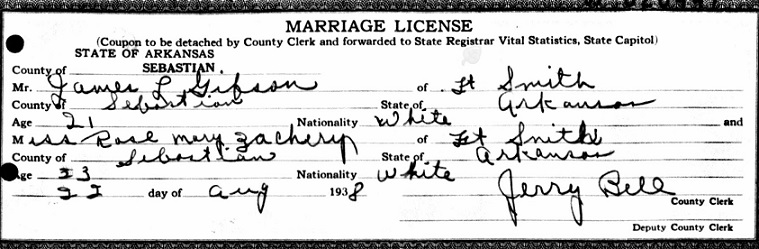 MARRIAGE LICENSE
(Coupon to be detached by County Clerk and forwarded to State Registrar Vital Statistics, State Capitol)
STATE OF ARKANSAS
County of SEBASTIAN.
Mr. James L Gipson of Ft Smith
County of Sebastian State of Arkansas
Age 21 Nationality White and
Miss Rose Mary Zachery of Ft Smith
County of Sebastian State of Arkansas
Age 23 Nationality White
22 day of Aug 1938 Jerry Bell
County Clerk
Deputy County Clerk